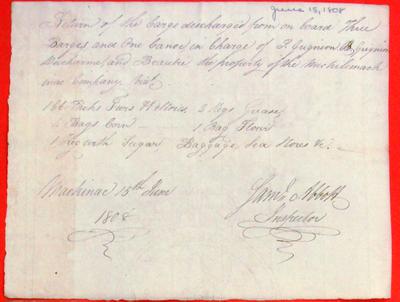 June 15, 1808
Return of the Cargo discharged from on board Three
Barges and One Canoe in Charge of P. Gugnion B. Gugnion
and Beaubie the property of the Michilimack
inac Company Viz.
166 Packs Furs & Peltries, 2 Kegs Grease
2 Bags Corn 1 Bag Flour
1 Keg with Sugar Baggage, Sea Stores &c.
Mackinac 15th June
1808
James Abbott
Inspector